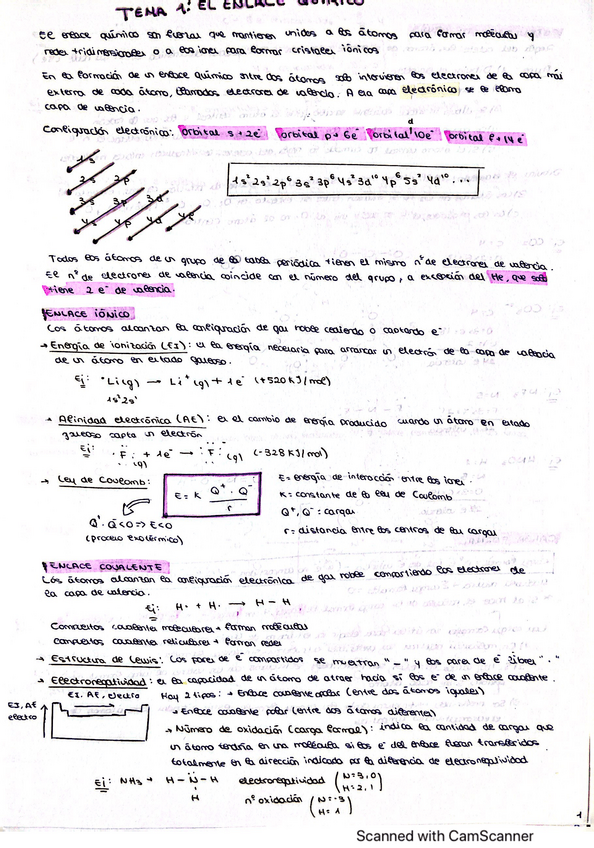 TEMA 1: EL ENLACE QUÍMICO
El enlace químico son fuerzas que mantienen unidos a los átomos para formar moléculas y
redes tridimensionales o a los iones para formar cristales iónicos
En la formación de un enlace químico entre dos átomos solo intervienen los electrones de la capa más
externa de cada átomo, llamados electrones de valencia. A esa capa electrónico se le llama
capa de valencia.
Configuración electrónica: orbital s→2e⁻ orbital p→6e⁻ orbital d 10e⁻ orbital f→14e⁻
1s
2s 2p
3s 3p 3d
4s 4p 4d 4f
1s² 2s² 2p⁶ 3s² 3p⁶ 4s² 3d¹⁰ 4p⁶ 5s² 4d¹⁰ ...
Todos los átomos de un grupo de la tabla periódica tienen el mismo nº de electrones de valencia.
El nº de electrones de valencia coincide con el número del grupo, a excepción del He, que solo
tiene 2 e⁻ de valencia.
ENLACE IÓNICO
Los átomos alcanzan la configuración de gas noble cediendo o captando e⁻
→ Energía de ionización (EI): es la energía necesaria para arrancar un electrón de la capa de valencia
de un átomo en estado gaseoso.
Ej: ·Li(g) → Li⁺(g) + 1e⁻ (+520 KJ/mol)
1s²2s¹
→ Afinidad electrónica (AE): es el cambio de energía producido cuando un átomo en estado
gaseoso capta un electrón
Ej: F (g) + 1e⁻ → F (g) (-328 KJ/mol)
→ Ley de Coulomb: E = K Q⁺ · Q⁻ / r
E = energía de interacción entre los iones.
K = constante de la ley de Coulomb
Q⁺, Q⁻: cargas
r = distancia entre los centros de las cargas
Q · Q < 0 => E < 0
(proceso exotérmico)
ENLACE COVALENTE
Los átomos alcanzan la configuración electrónica de gas noble compartiendo los electrones de
la capa de valencia.
Ej: H· + H· → H - H
Compuestos covalentes moleculares → forman moléculas
Compuestos covalentes reticulares → forman redes
→ Estructura de Lewis: Los pares de e⁻ compartidos se muestran "-" y los pares de e⁻ libres "··"
→ Electronegatividad: es la capacidad de un átomo de atraer hacia sí los e⁻ de un enlace covalente.
EI, AE, electro
EI, AE
electro
Hay 2 tipos: → Enlace covalente polar (entre dos átomos iguales)
→ Enlace covalente polar (entre dos átomos diferentes)
→ Número de oxidación (carga formal): indica la cantidad de cargas que
un átomo tendría en una molécula si los e⁻ del enlace fueran transferidos
totalmente en la dirección indicada por la diferencia de electronegatividad
Ej: NH₃ → H - N - H
H
electronegatividad (N = 3,0
H = 2,1)
nº oxidación (N = -3
H = 1)
1
Scanned with CamScanner